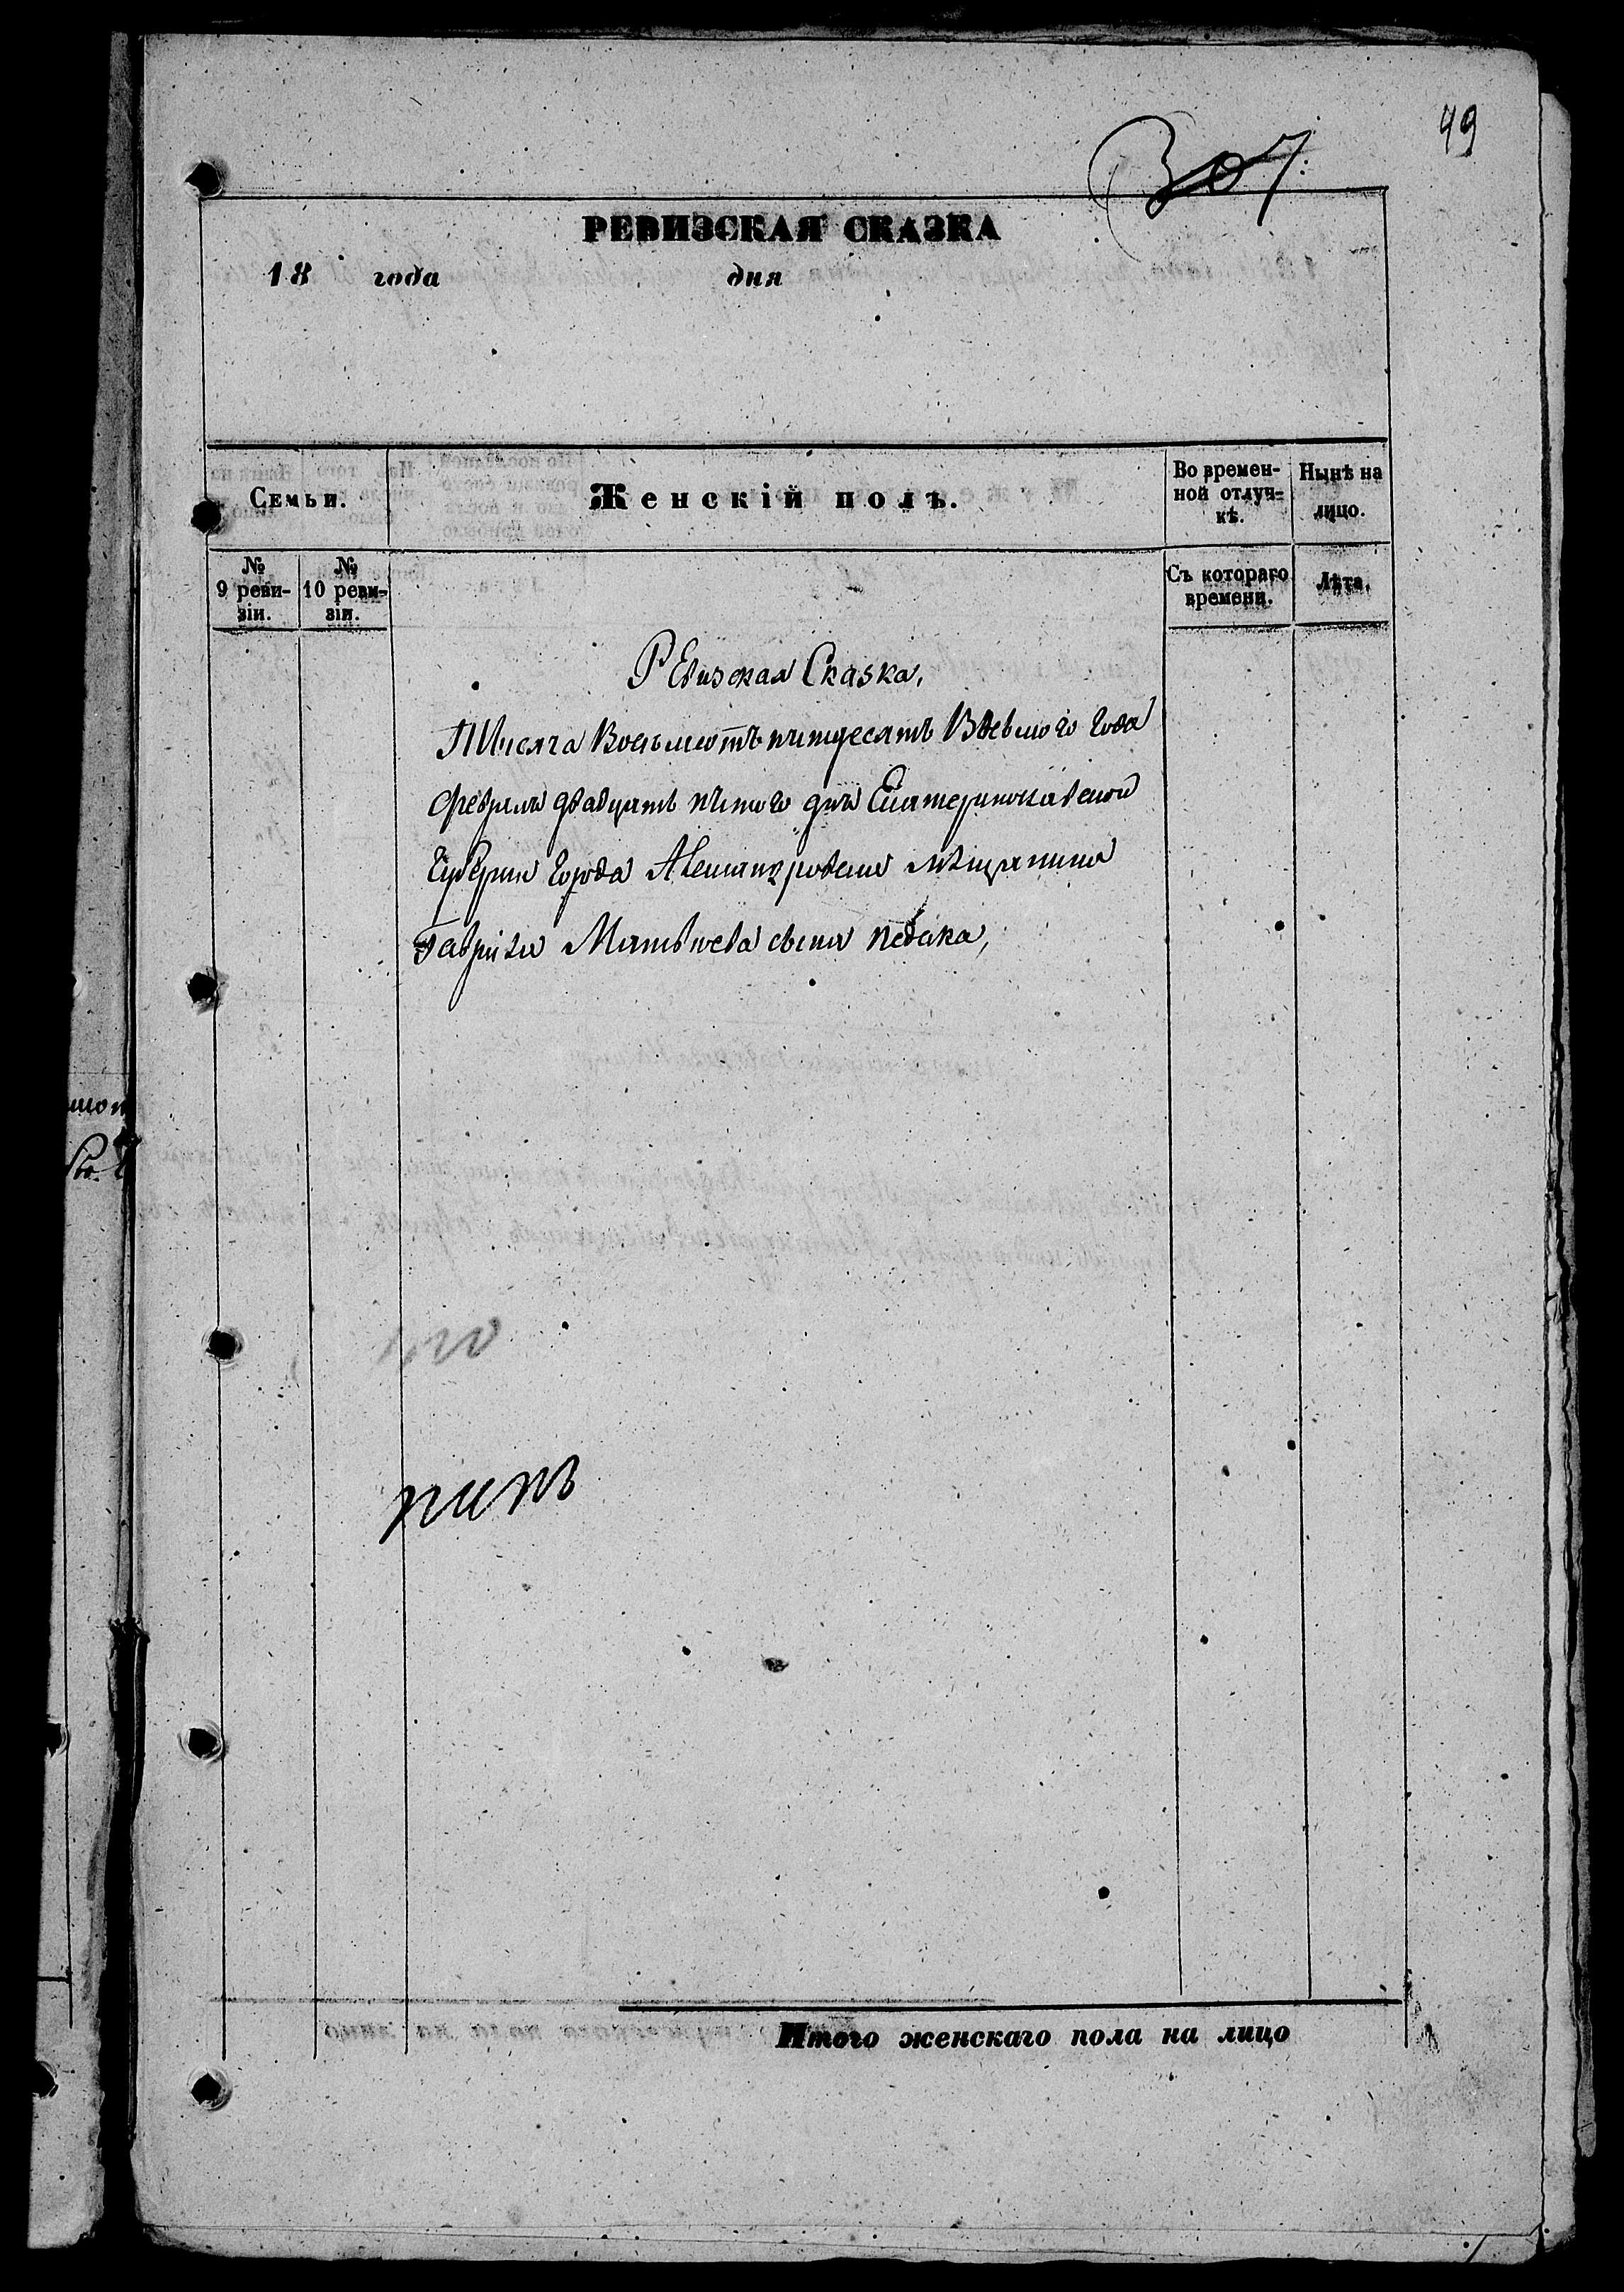 49
307
РЕВИЗСКАЯ СКАЗКА
18 года дня
Семьи.
Женскій полъ.
Во времен-
ной отлуч-
кѣ.
Нынѣ на
лицо.
№
9 реви-
зіи.
№
10 реви-
зіи.
Съ котораго
времени.
Лѣта.
Ревизская Сказка,
Тысяча Восьмсотъ пятдесятъ Восьмого Года
февраля двадцать пятого дня Екатеринославской
Губерніи Города Александровска мѣщанина
Гаврила Матвѣева сына
Итого женскаго пола на лицо